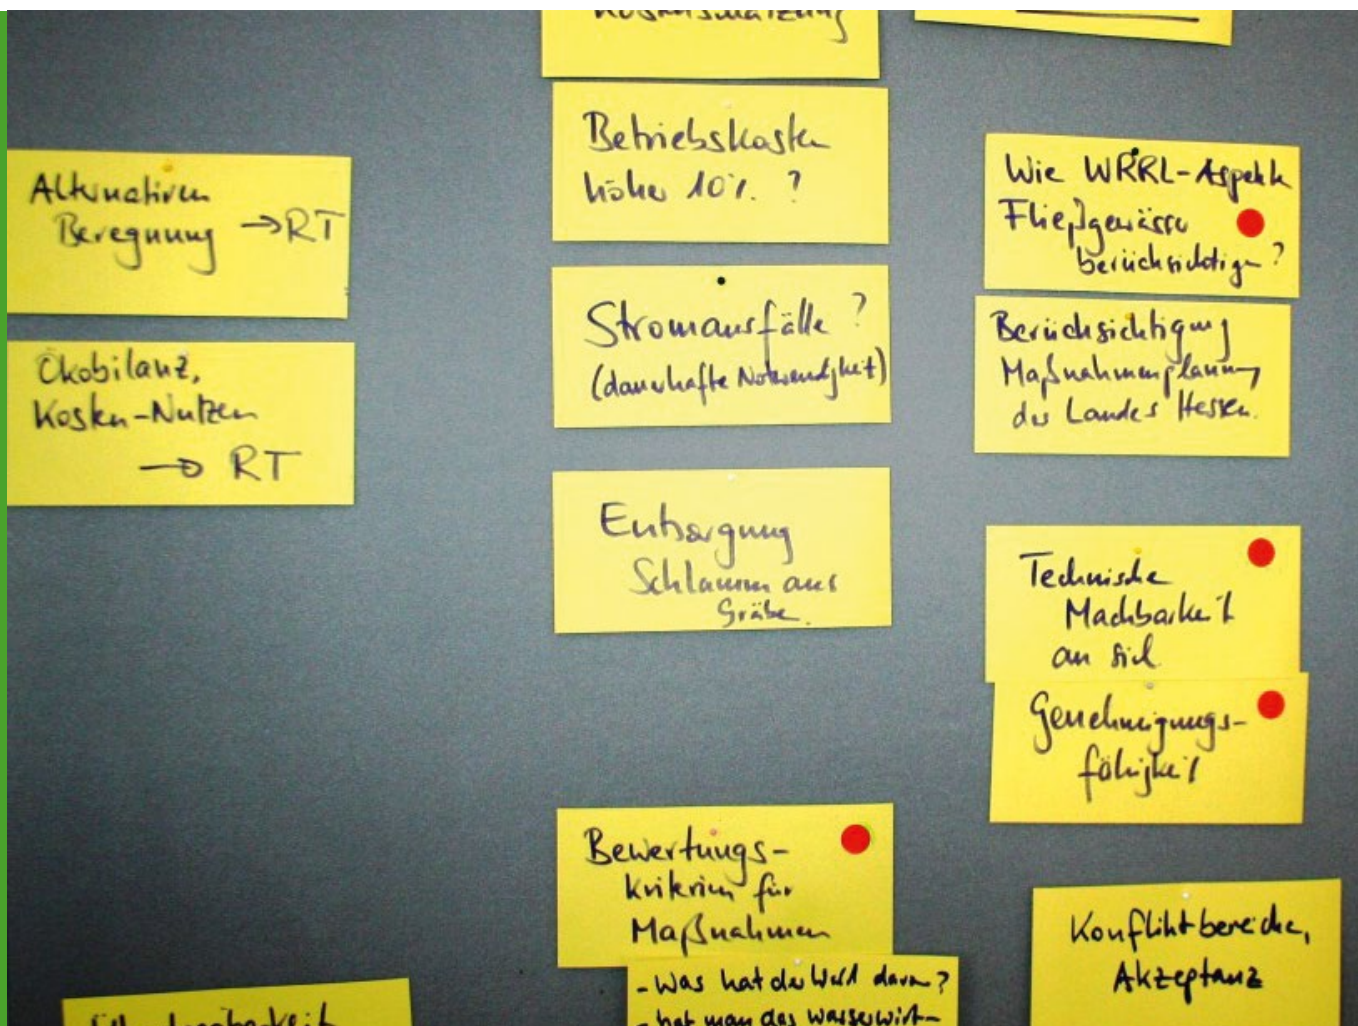 Alternativen
Beregnung → RT
Ökobilanz,
Kosten-Nutzen
→ RT
Betriebskosten
höher 10%. ?
Stromausfälle ?
(dauerhafte Notwendigkeit)
Entsorgung
Schlamm aus
Gräben.
Bewertungs-
kriterien für
Maßnahmen
- Was hat der Wald davon?
- hat man das wasserwirt-
Wie WRRL-Aspekte
Fließgewässer
berücksichtigen?
Berücksichtigung
Maßnahmenplanung
des Landes Hessen.
Technische
Machbarkeit
an sich
Genehmigungs-
fähigkeit
Konfliktbereiche,
Akzeptanz